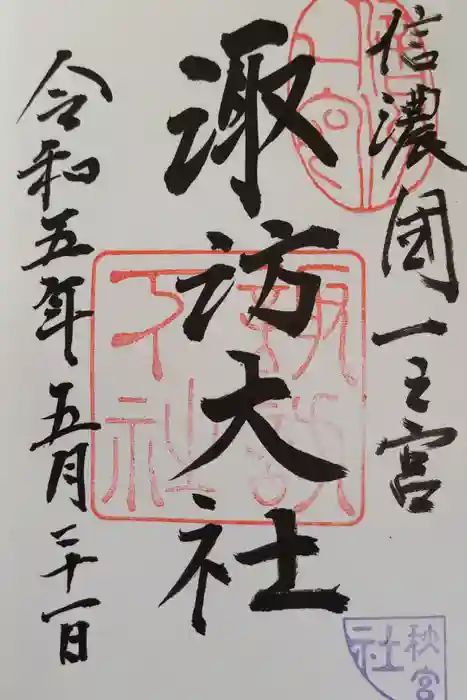 信濃国一之宮
諏訪大社
令和五年五月二十一日
諏訪下社
秋宮
社